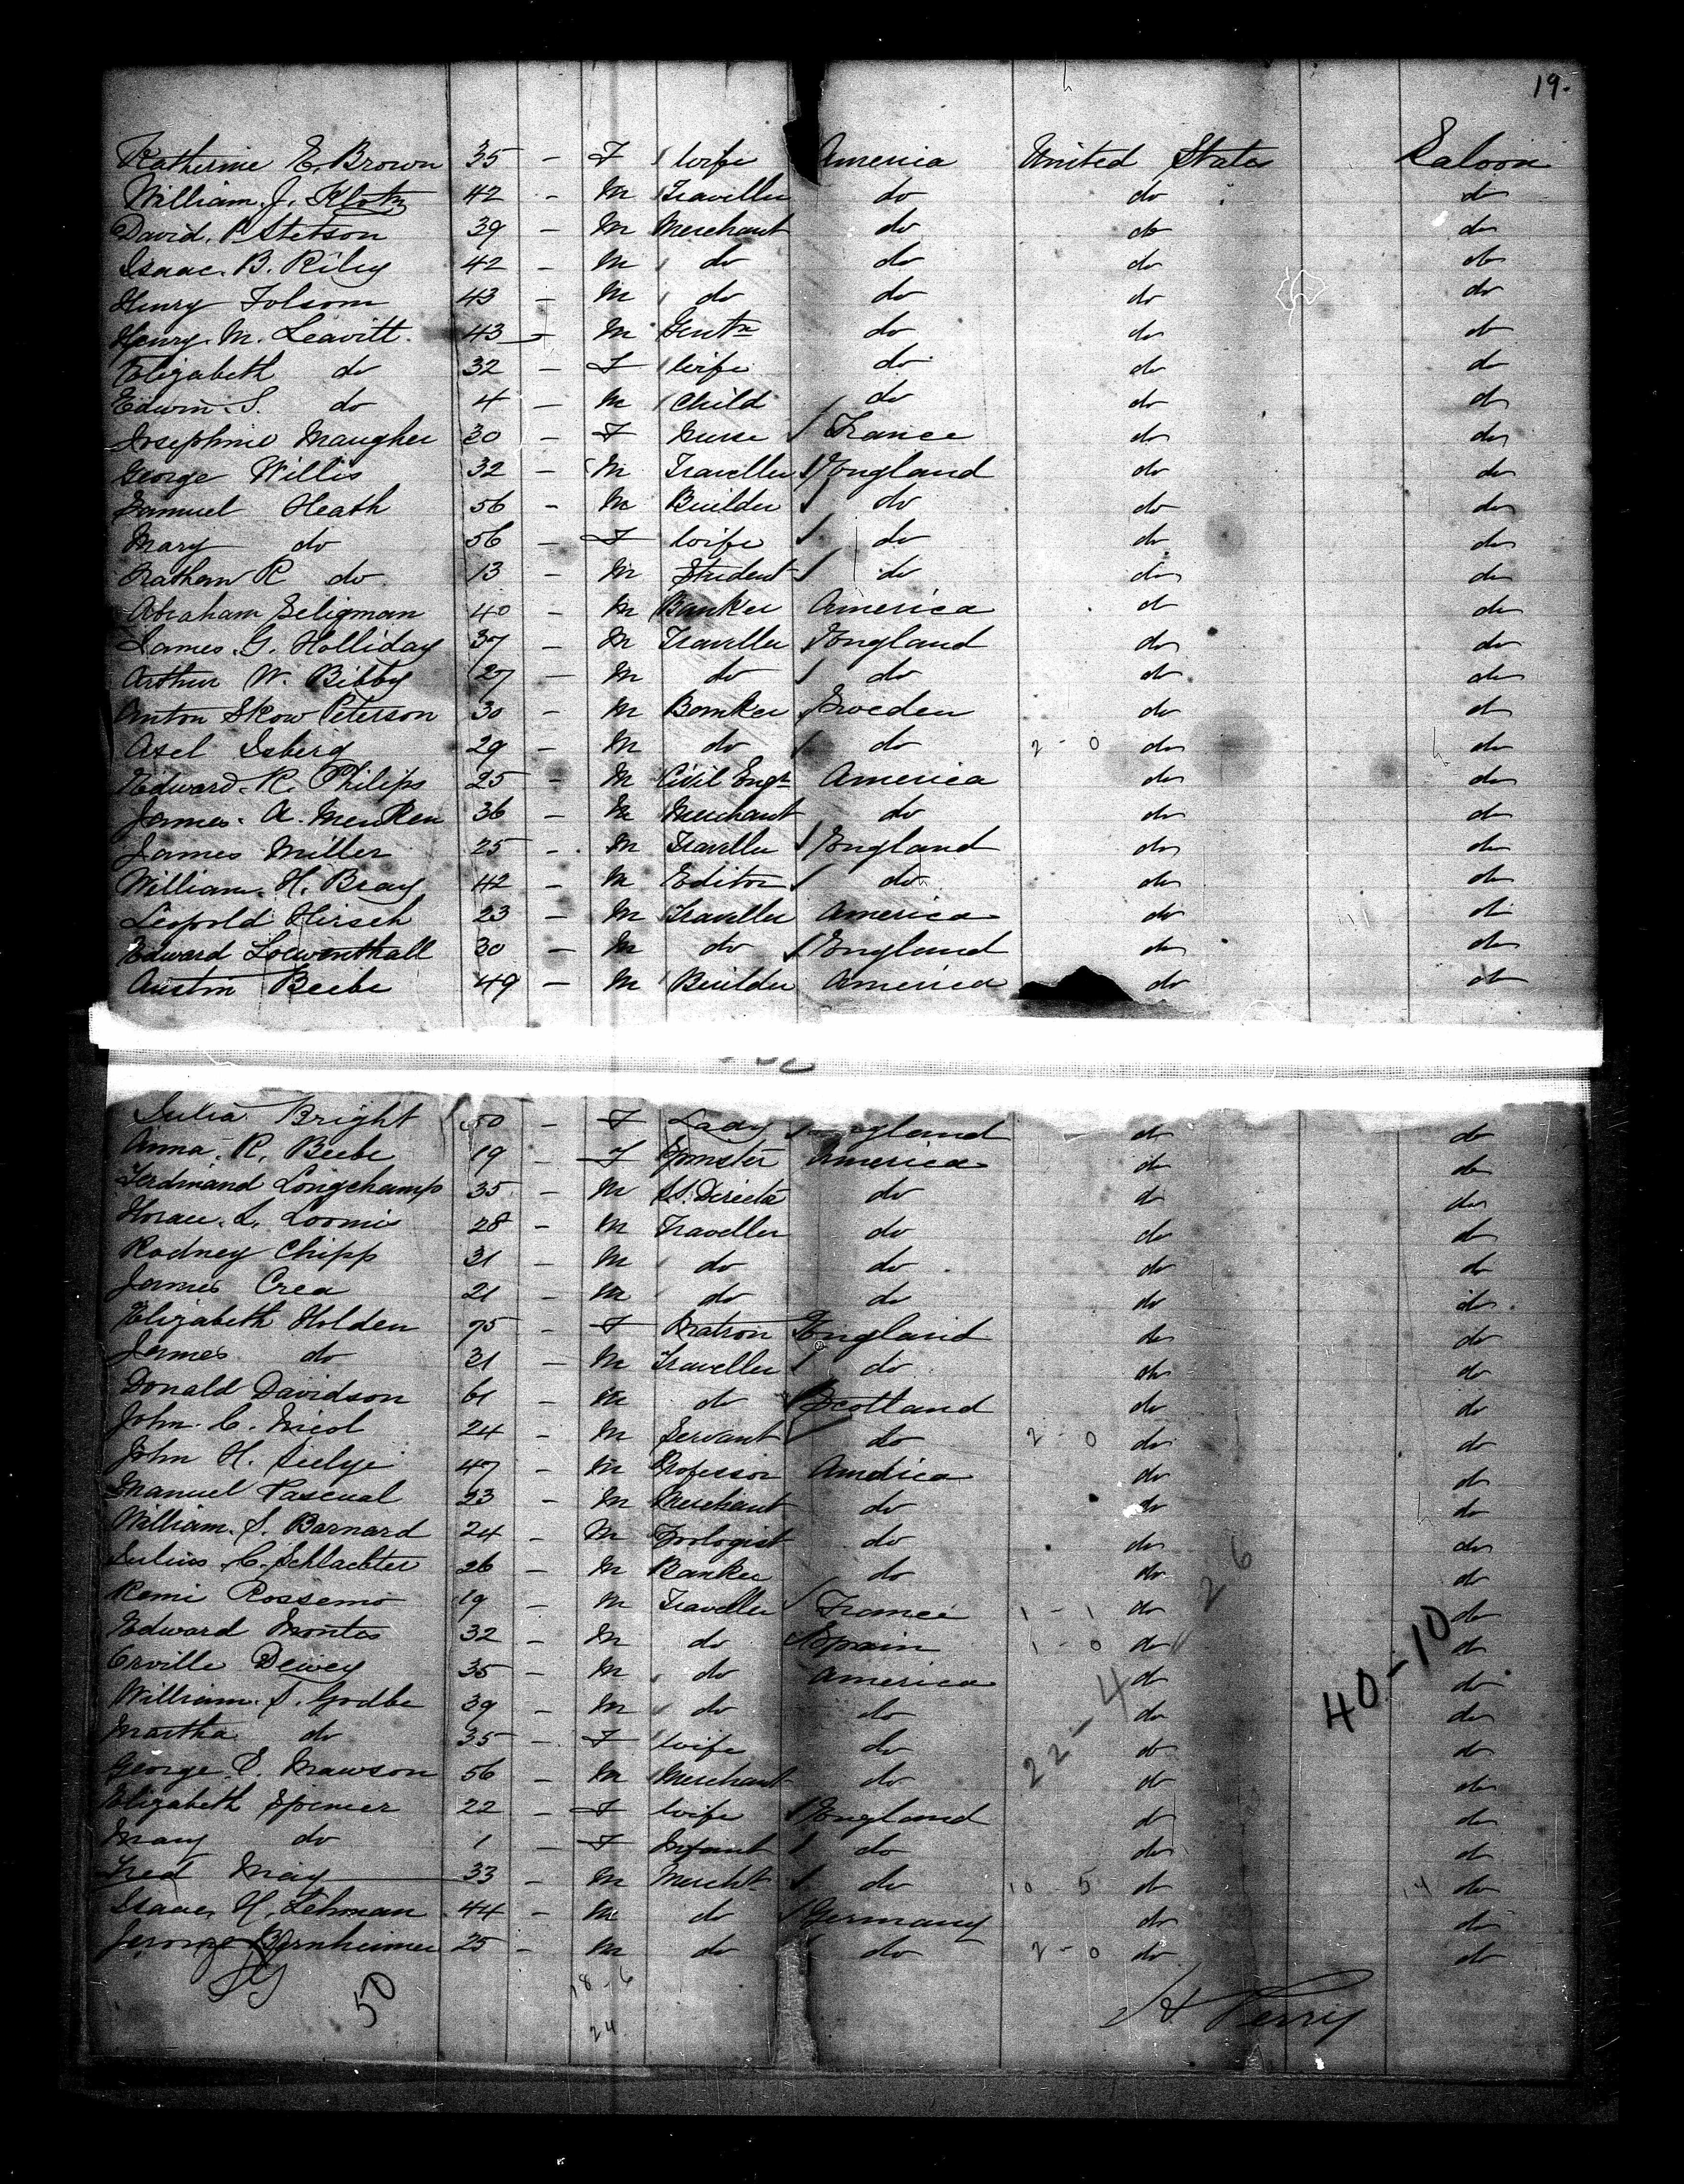 19.
Katherine E. Brown 35 - F wife America United States Saloon
William J. Klotz 42 - M Traveller do do do
David P. Stetson 39 - M Merchant do do do
Isaac. B. Riley 42 - M do do do do
Henry Folsom 43 - M do do do do
Henry. M. Leavitt. 43 - M Gentn do do do
Elizabeth do 32 - F wife do do do
Edwin. S. do 4 - M Child do do do
Josephine Maugher 30 - F Nurse France do do
George Willis 32 - M Traveller England do do
Samuel Heath 56 - M Builder do do do
Mary do 56 - F wife do do do
Nathan R do 13 - M Student do do do
Abraham Seligman 40 - M Banker America do do
James. G. Holliday 37 - M Traveller England do do
Arthur W. Bibby 27 - M do do do do
Anton Skow Peterson 30 - M Banker Sweden do do
Axel Isberg 29 - M do do 2 - 0 do do
Edward. R. Philips 25 - M Civil Engr America do do
James. A. Menken 36 - M Merchant do do do
James Miller 25 - M Traveller England do do
William. H. Bray 42 - M Editor do do do
Leopold Hirsch 23 - M Traveller America do do
Edward Loewenthall 30 - M do England do do
Austin Beebe 49 - M Builder America do do
Julia Bright 50 - F Lady England do do
Anna. R. Beebe 19 - F Spinster America do do
Ferdinand Longchamp 35 - M do do do
Horace. L. Loomis 28 - M Traveller do do do
Rodney Chipp 31 - M do do do do
James Crea 21 - M do do do do
Elizabeth Holden 75 - F Matron England do do
James do 31 - M Traveller do do do
Donald Davidson 61 - M do Scotland do do
John. C. Nicol 24 - M Servant do 2 - 0 do do
John H. Seelye 47 - M Professor America do do
Manuel Pascual 23 - M Merchant do do do
William. S. Barnard 24 - M Zoologist do do do
Julius. C. Schlachter 26 - M Banker do do do
Remi Rossemo 19 - M Traveller France 1 - 1 do 26 do
Edward Montes 32 - M do Spain 1 - 0 do do
Orville Dewey 35 - M do America do do
William. S. Godbe 39 - M do do do 40-10 do
Martha do 35 - F wife do do do
George. E. Mawson 56 - M Merchant do 22-4 do do
Elizabeth Spencer 22 - F wife England do do
Mary do 1 - F Infant do do do
Fred May 33 - M Mercht do 10 - 5 do 14 do
Isaac. H. Lehman 44 - M do Germany do do
Jerome Bernheimer 25 - M do do 2 - 0 do do
50 18-6
24
H Perry